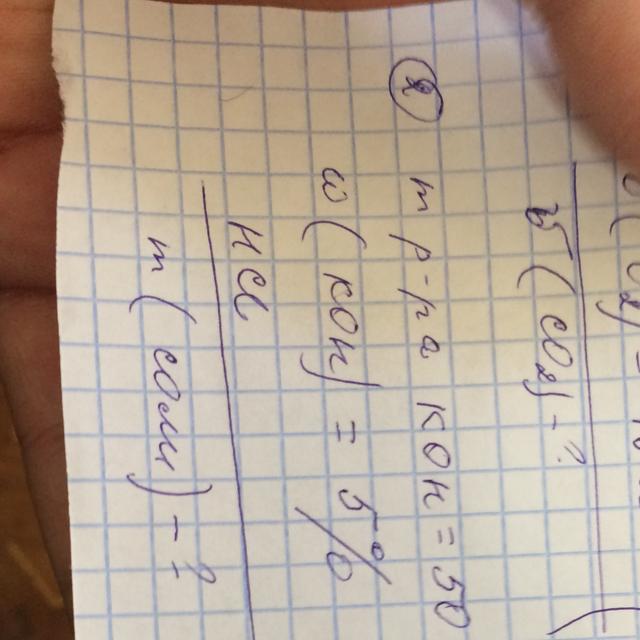 V(CO2) - ?
2
m р-ра KOH = 50
ω(KOH) = 5%
HCl
m(соли) - ?